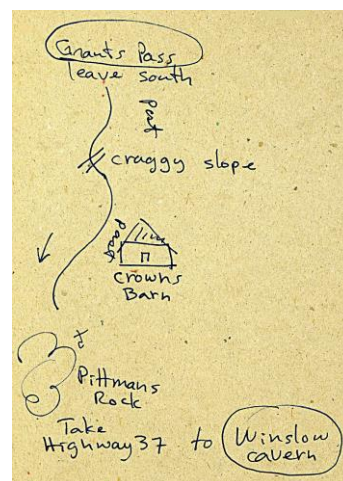 Grants Pass
leave south
Past
craggy slope
Past
Crowns
Barn
to
Pittmans
Rock
Take
Highway 37 to Winslow
cavern